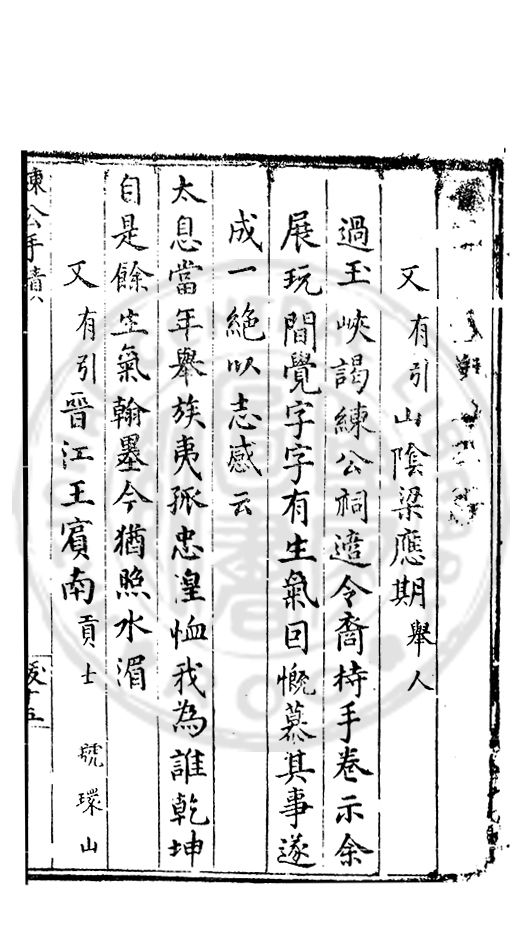 又 有引 山陰梁應期 舉人
過玉峽謁練公祠適令裔持手卷示余
展玩間覺字字有生氣回慨慕其事遂
成一絕以志感云
太息當年舉族夷孤忠湟恤我為誰乾坤
自是餘生氣翰墨今猶照水湄
又 有引 晉江王賓南 貢士 號環山
練公手蹟